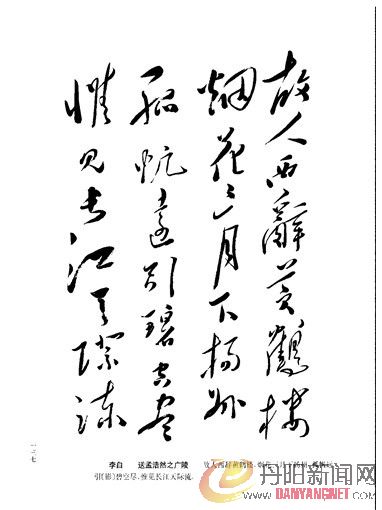 故人西辭黄鶴楼
烟花三月下揚州
孤帆遠引碧空尽
惟见长江天際流
李白 送孟浩然之广陵 故人西辞黄鹤楼,烟花三月下扬州。孤帆远
引[影]碧空尽,惟见长江天际流。
丹阳新闻网